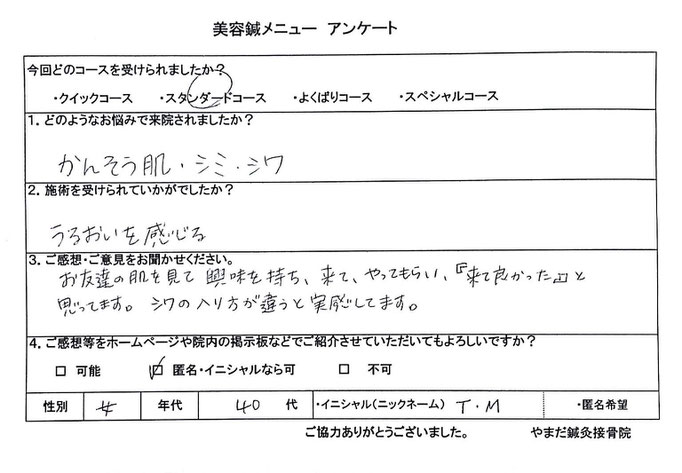 美容鍼メニュー アンケート
今回どのコースを受けられましたか?
・クイックコース ・スタンダードコース ・よくばりコース ・スペシャルコース
1. どのようなお悩みで来院されましたか?
かんそう肌・シミ・シワ
2. 施術を受けられていかがでしたか?
うるおいを感じる
3. ご感想・ご意見をお聞かせください。
お友達の肌を見て興味を持ち、来て、やってもらい、『来て良かった』と
思ってます。シワの入り方が違うと実感してます。
4. ご感想等をホームページや院内の掲示板などでご紹介させていただいてもよろしいですか?
□ 可能 ☑ 匿名・イニシャルなら可 □ 不可
性別 女 年代 40 代 ・イニシャル(ニックネーム) T・M ・匿名希望
ご協力ありがとうございました。 やまだ鍼灸接骨院